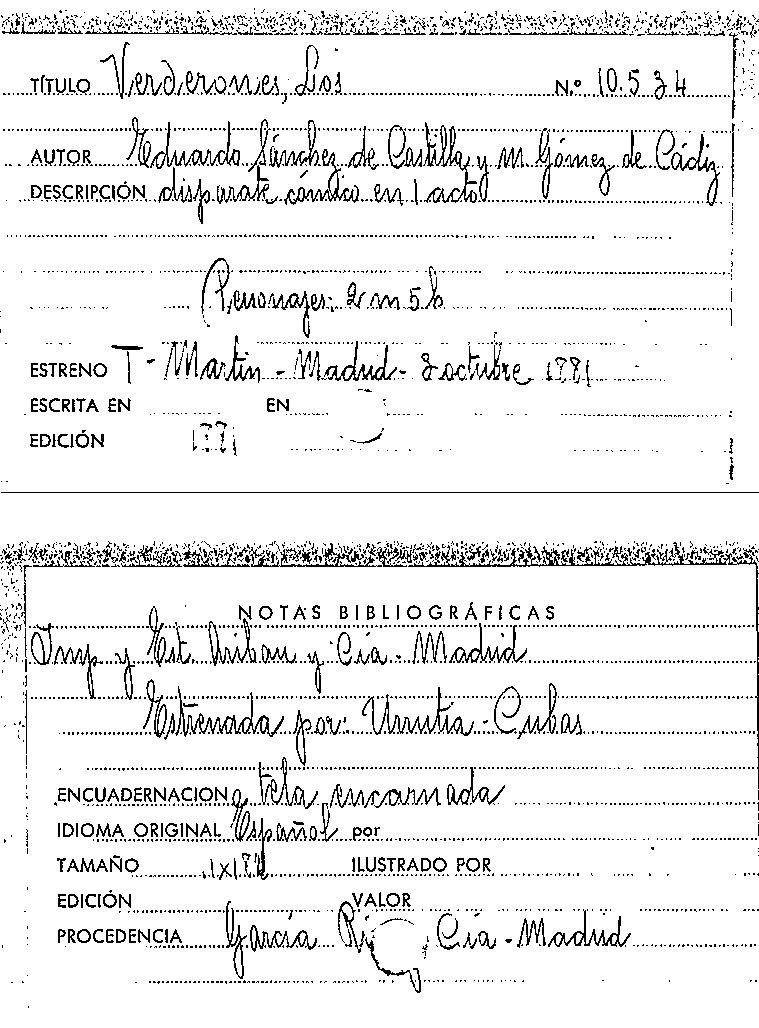 TÍTULO Verderones, Los N.º 10.534
AUTOR Eduardo Sánchez de Castilla y M. Gómez de Cádiz
DESCRIPCIÓN disparate cómico en 1 acto
Personajes: 2 m 5 h
ESTRENO T - Martin - Madrid - 8 octubre 1881
ESCRITA EN EN
EDICIÓN 1881
NOTAS BIBLIOGRÁFICAS
Imp y Est. Aribau y Cía - Madrid
Estrenada por: Urrutia - Cubas
ENCUADERNACION tela encarnada
IDIOMA ORIGINAL Español por
TAMAÑO ILUSTRADO POR
EDICIÓN VALOR
PROCEDENCIA García Cía - Madrid